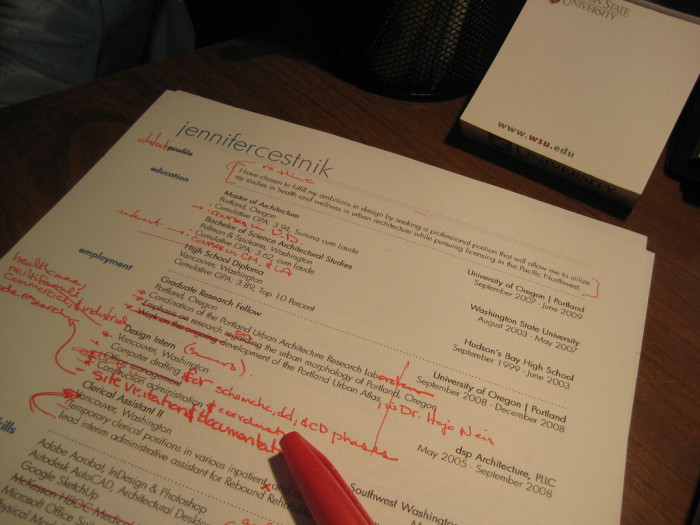 AN STATE
UNIVERSITY
www.wsu.edu
UNIVERSITY
jennifercestnik
profile
resume
I have chosen to fulfill my ambitions in design by seeking a professional position that will allow me to utilize
my studies in health and wellness in urban architecture while pursuing licensing in the Pacific Northwest.
education
Master of Architecture University of Oregon | Portland
Portland, Oregon September 2007 - June 2009
· Cumulative GPA: 3.94, Summa cum Laude
courses in U.D.
Bachelor of Science Architectural Studies Washington State University
Pullman & Spokane, Washington August 2003 - May 2007
· Cumulative GPA: 3.62, cum Laude
courses in CM, & LA
High School Diploma Hudson's Bay High School
Vancouver, Washington September 1999 - June 2003
Cumulative GPA: 3.89, Top 10 Percent
employment
healthcare,
commercial, industrial
Graduate Research Fellow University of Oregon | Portland
Portland, Oregon September 2008 - December 2008
Coordination of the Portland Urban Architecture Research Laboratory
Emphasis on research regarding the urban morphology of Portland, Oregon
Work on the ongoing development of the Portland Urban Atlas
Dr. Hajo Neis
Design Intern (summers) dsp Architecture, PLLC
Vancouver, Washington May 2005 - September 2008
Computer drafting for schematic, dd, & CD phases
Office management
Construction administration & coordination
site visitation & documentation
Clerical Assistant II Southwest Washington
Vancouver, Washington
Temporary clerical positions in various inpatient and
lead interim administrative assistant for Rebound
skills
Adobe Acrobat, InDesign & Photoshop
Autodesk AutoCAD, Architectural Desktop
Google SketchUp
McKesson HBOC Medical
Microsoft Office
Physical Model